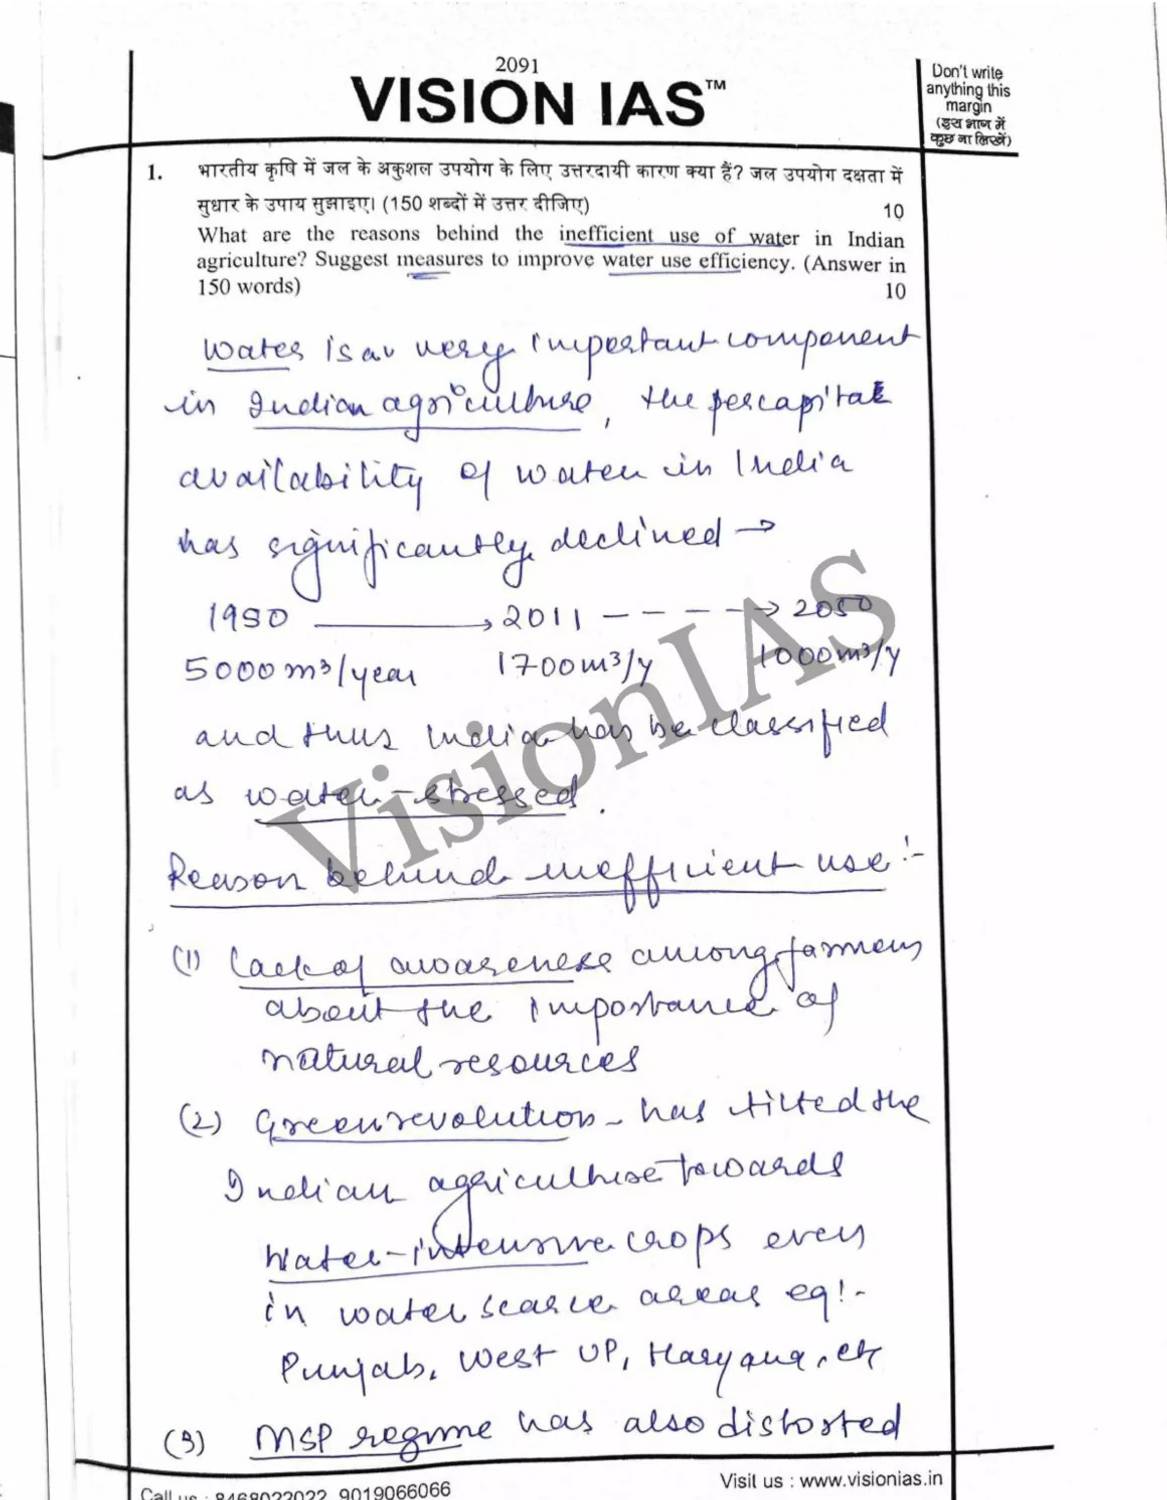 2091
VISION IAS™
Don't write
anything this
margin
(इस भाग में
कुछ ना लिखें)
1. भारतीय कृषि में जल के अकुशल उपयोग के लिए उत्तरदायी कारण क्या हैं? जल उपयोग दक्षता में
सुधार के उपाय सुझाइए। (150 शब्दों में उत्तर दीजिए) 10
What are the reasons behind the inefficient use of water in Indian
agriculture? Suggest measures to improve water use efficiency. (Answer in
150 words) 10
Water is a very important component
in Indian agriculture, the percapita
availability of water in India
has significantly declined →
1950 → 2011 - - - - → 2050
5000 m³/year 1700 m³/y 1000 m³/y
and thus India has be classified
as water-stressed.
Reason behind inefficient use :-
(1) Lack of awareness among farmers
about the importance of
natural resources
(2) Green revolution - has tilted the
Indian agriculture towards
Water-intensive crops even
in water scarce areas eg:-
Punjab, West UP, Haryana, etc
(3) MSP regime has also distorted
VisionIAS
Call us : 8468022022, 9019066066
Visit us : www.visionias.in